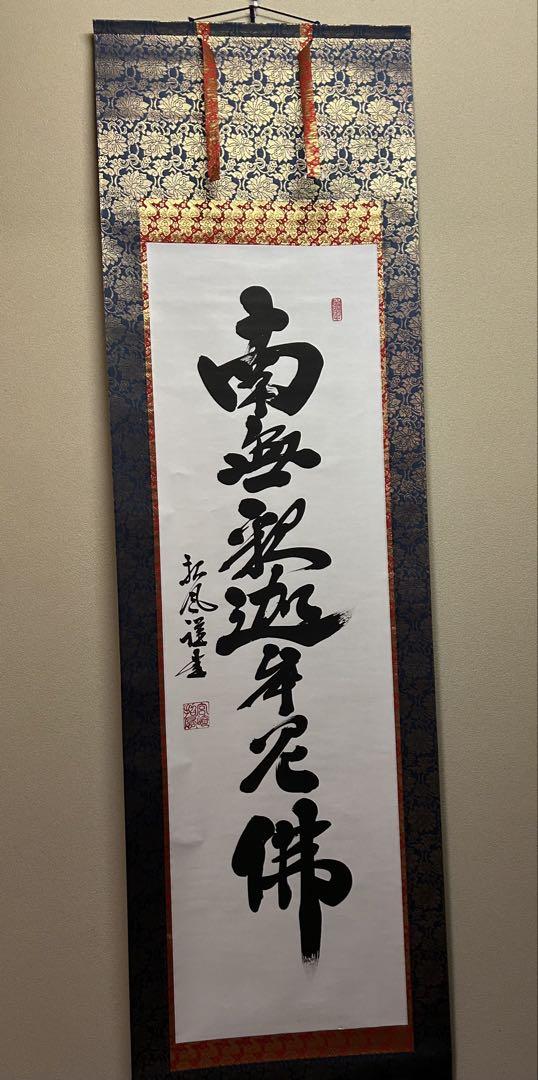 南無釈迦牟尼佛
拓風謹書